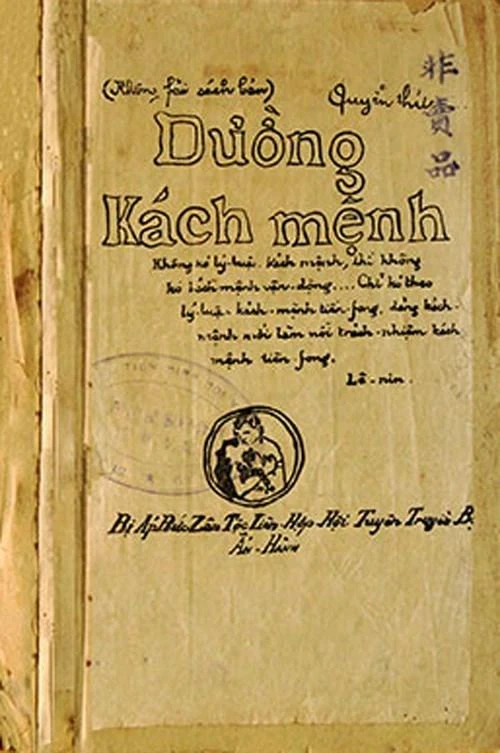 (Không fải sách bán)
Quyển thứ
非賣品
Đường
Kách mệnh
Không kó lý-luận kách mệnh, thì không
kó kách mệnh vận-động.... Chỉ kó theo
lý-luận kách-mệnh tiền-fong, đảng kách-
mệnh mới làm nổi trách-nhiệm kách
mệnh tiền-fong.
Lê-nin.
Bị Áp Bức Zân Tộc Liên-Hợp Hội Tuyên Truyền Bộ
Ấn-Hành